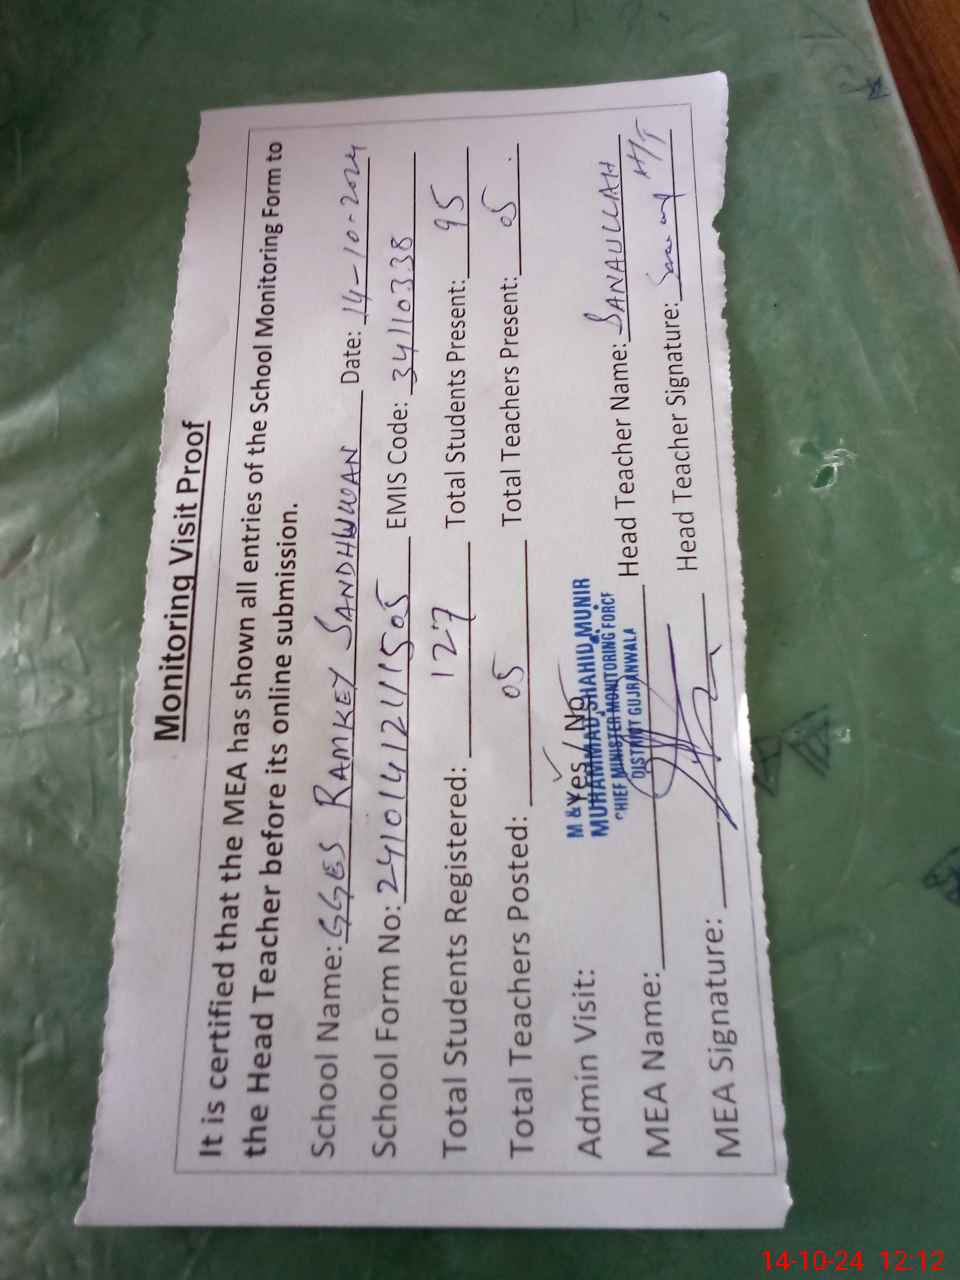 Monitoring Visit Proof
It is certified that the MEA has shown all entries of the School Monitoring Form to
the Head Teacher before its online submission.
School Name: GGES RAMKEY SANDHWWAN Date: 14-10-2024
School Form No: 24101412111505 EMIS Code: 34110338
Total Students Registered: 127 Total Students Present: 95
Total Teachers Posted: 05 Total Teachers Present: 05
Admin Visit: Yes / No
M &
MUHAMMAD SHAHID MUNIR
CHIEF MINISTER MONITORING FORCE
DISTRICT GUJRANWALA
MEA Name: Head Teacher Name: SANAULLAH
MEA Signature: Head Teacher Signature: H/T
14-10-24 12:12